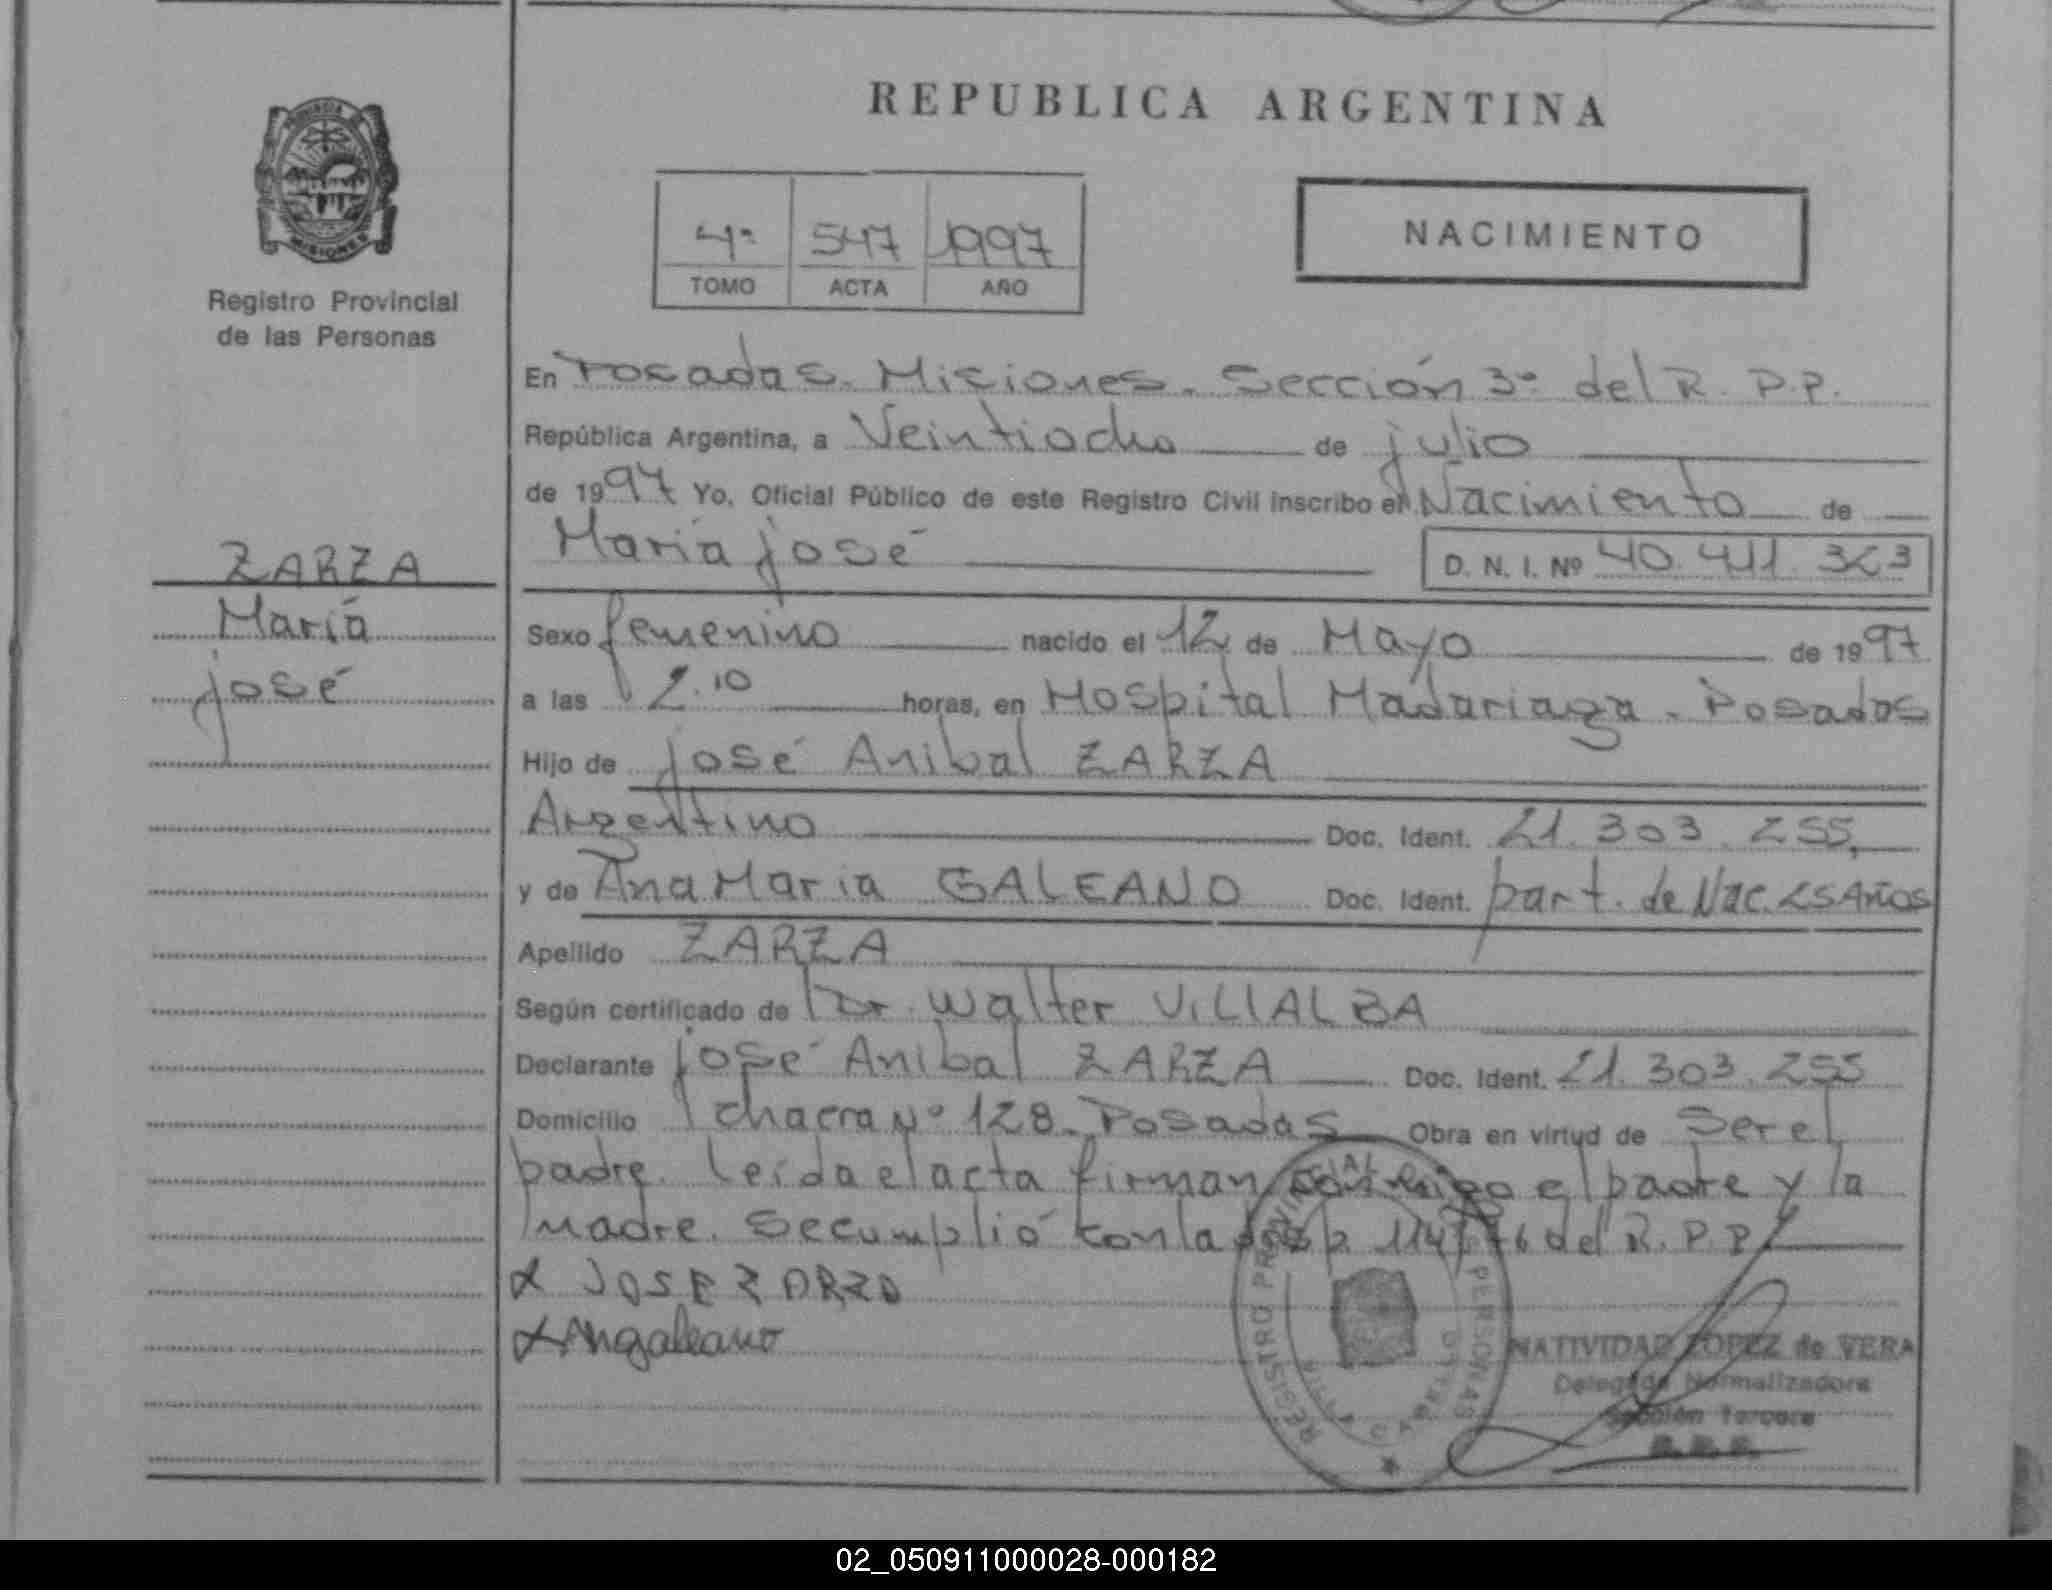 REPUBLICA ARGENTINA
PROVINCIA DE
MISIONES
Registro Provincial
de las Personas
4º 547 1997
TOMO ACTA AÑO
NACIMIENTO
ZARZA
María
josé
En Posadas. Misiones. Sección 3º del R. P.P.
República Argentina, a Veintiocho de julio
de 1997 Yo, Oficial Público de este Registro Civil inscribo el Nacimiento de
María josé D. N. I. Nº 40.411.323
Sexo femenino nacido el 12 de Mayo de 1997
a las 2.10 horas, en Hospital Madariaga. Posadas
Hijo de josé Anibal ZARZA
Argentino Doc. Ident. 21.303.255,
y de Ana Maria GALEANO Doc. Ident. part. de Nac. 25 Años
Apellido ZARZA
Según certificado de Dr. Walter VILLALBA
Declarante josé Anibal ZARZA Doc. Ident. 21.303.255
Domicilio Chacra Nº 128. Posadas Obra en virtud de Ser el
padre. leída el acta firman conmigo el padre y la
madre. Se cumplió con la disp. 114/76 del R.P.P.
X JOSE ZARZA
X Angaleano
REGISTRO PROVINCIAL PERSONAS
NATIVIDAD LOPEZ de VERA
Delegada Normalizadora
Sección Tercera
02_050911000028-000182